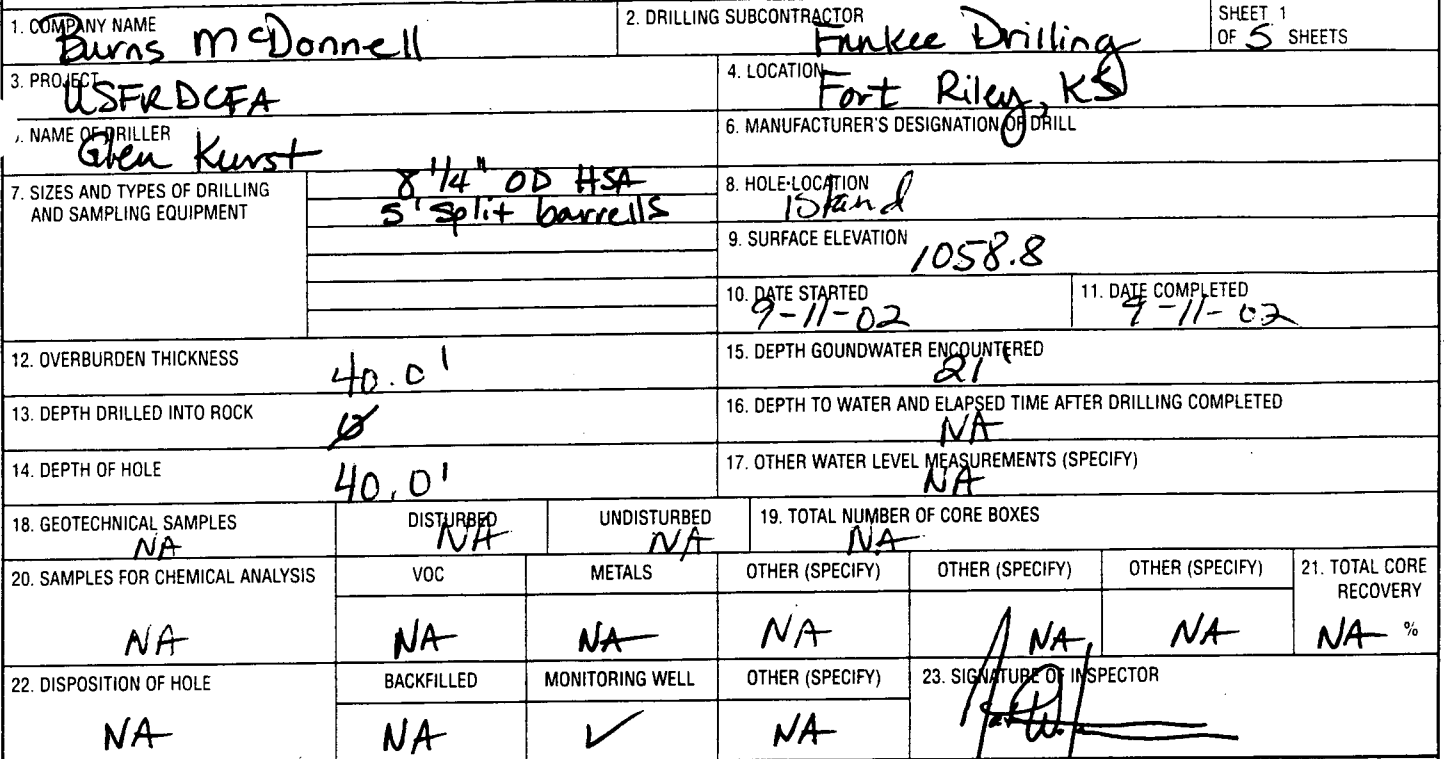 1. COMPANY NAME
Burns McDonnell
2. DRILLING SUBCONTRACTOR
Drilling
SHEET 1
OF 5 SHEETS
3. PROJECT
USFRDCFA
4. LOCATION
Fort Riley, KS
. NAME OF DRILLER
Glen Kurst
6. MANUFACTURER'S DESIGNATION OF DRILL
7. SIZES AND TYPES OF DRILLING
AND SAMPLING EQUIPMENT
8 1/4" OD HSA
5' Split barrells
8. HOLE LOCATION
Island
9. SURFACE ELEVATION
1058.8
10. DATE STARTED
9-11-02
11. DATE COMPLETED
9-11-02
12. OVERBURDEN THICKNESS
40.0'
15. DEPTH GOUNDWATER ENCOUNTERED
21'
13. DEPTH DRILLED INTO ROCK
Ø
16. DEPTH TO WATER AND ELAPSED TIME AFTER DRILLING COMPLETED
NA
14. DEPTH OF HOLE
40.0'
17. OTHER WATER LEVEL MEASUREMENTS (SPECIFY)
NA
18. GEOTECHNICAL SAMPLES
NA
DISTURBED
NA
UNDISTURBED
NA
19. TOTAL NUMBER OF CORE BOXES
NA
20. SAMPLES FOR CHEMICAL ANALYSIS
NA
VOC
NA
METALS
NA
OTHER (SPECIFY)
NA
OTHER (SPECIFY)
NA
OTHER (SPECIFY)
NA
21. TOTAL CORE
RECOVERY
NA %
22. DISPOSITION OF HOLE
NA
BACKFILLED
NA
MONITORING WELL
✓
OTHER (SPECIFY)
NA
23. SIGNATURE OF INSPECTOR